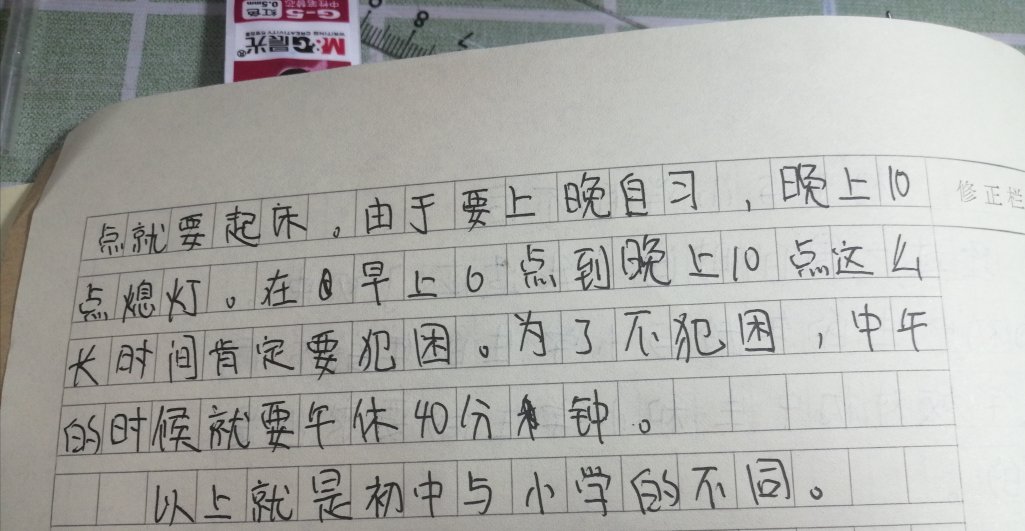 红色
0.5mm
G-5
中性笔替芯
M&G晨光®
8
7
点就要起床。由于要上晚自习，晚上10
修正栏
点熄灯。在早上6点到晚上10点这么
长时间肯定要犯困。为了不犯困，中午
的时候就要午休40分钟。
以上就是初中与小学的不同。